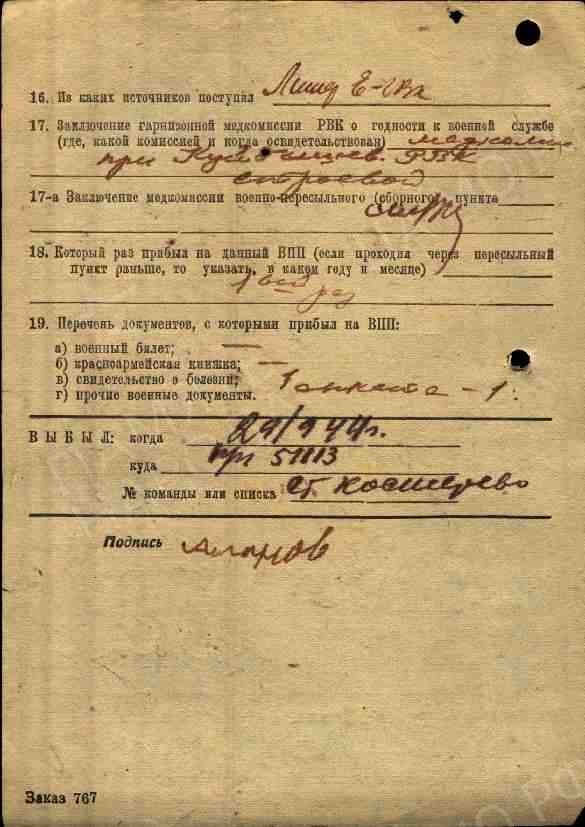 16. Из каких источников поступил
17. Заключение гарнизонной медкомиссии РВК о годности к военной службе
(где, какой комиссией и когда освидетельствован)
при РВК
строевой
17-а Заключение медкомиссии военно-пересыльного (сборного) пункта
18. Который раз прибыл на данный ВПП (если проходил через пересыльный
пункт раньше, то указать, в каком году и месяце)
1 раз
19. Перечень документов, с которыми прибыл на ВПП:
а) военный билет; —
б) красноармейская книжка; —
в) свидетельство о болезни;
г) прочие военные документы. — 1.
ВЫБЫЛ: когда 29/9 44г.
куда 51113
№ команды или списка ст Костерево
Подпись
Заказ 767